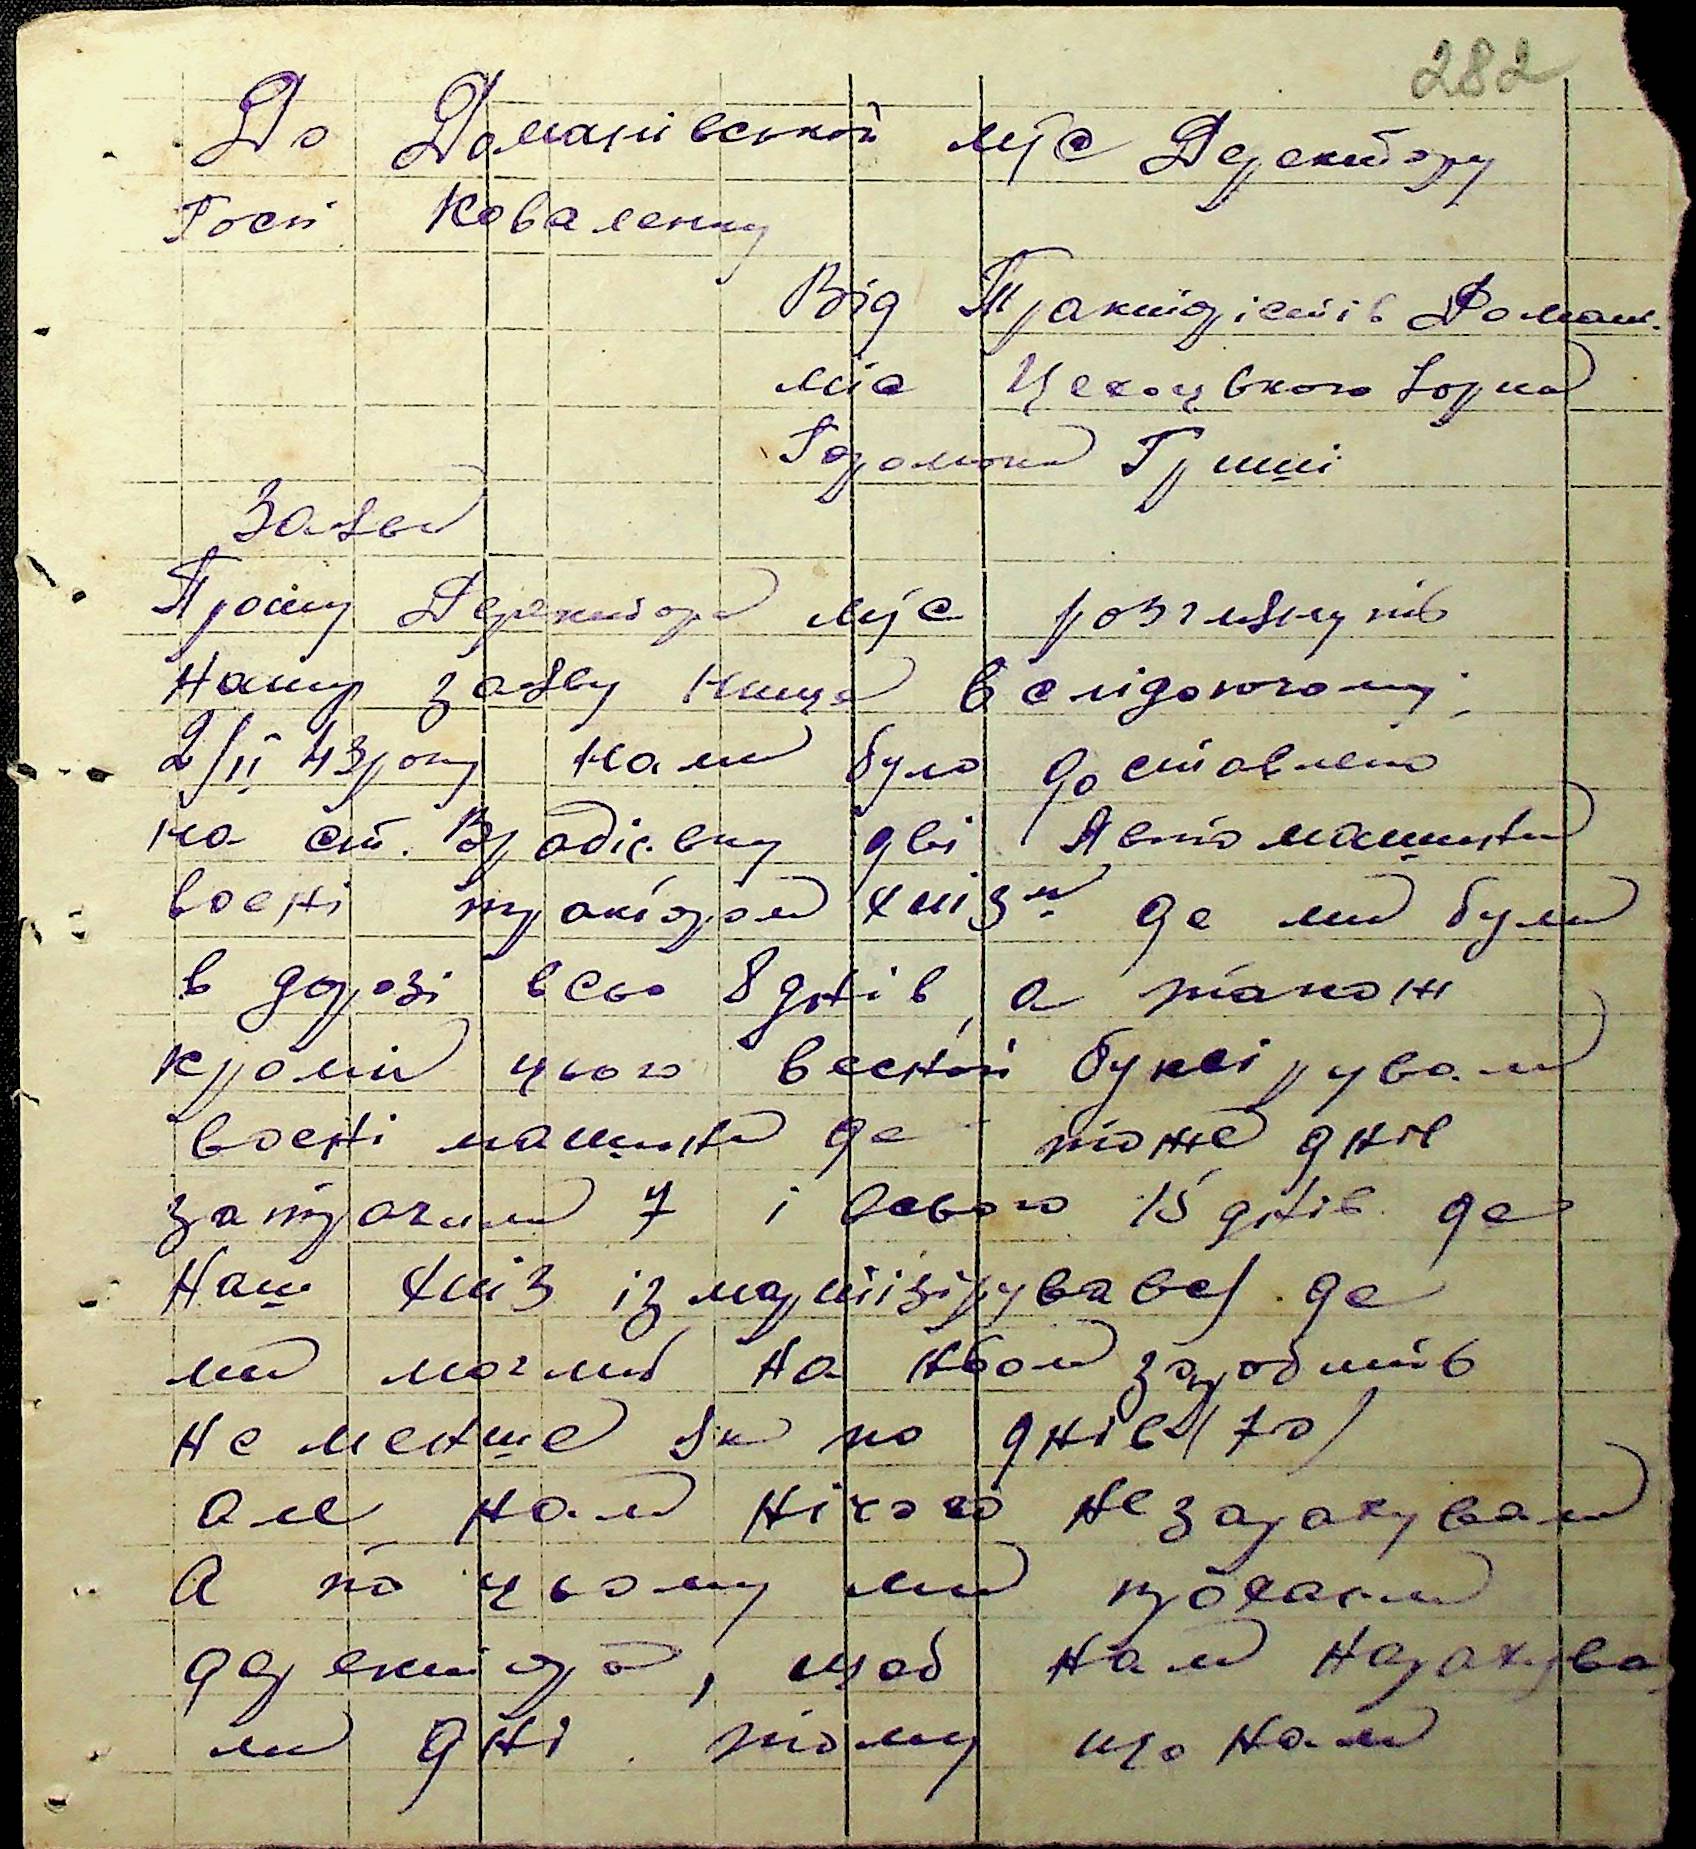 282
До Доманівської мтс Деректору
Госп Коваленку
Від Трактористів Доман.
мтс
Гориа Гриші
Заява
Прошу Деректора мтс розглянуть
нашу заяву нище в слідоючому;
2/II 43 року нами було доставлено
на ст. Врадієвку дві Автомашини
воєні трактором хтіз де ми були
в дорозі всьо 8 днів, а також
кроми цього весной буксірували
воєні машини де тоже днів
затрачили 7 і всього 15 днів де
наш хтіз де
ми моглиб на ньом заробить
не менше як по днів (70)
але нам нічого незарахували
А по цьому ми прохаєм
деректора, щоб нам нарахува
ли дні. тому що нам